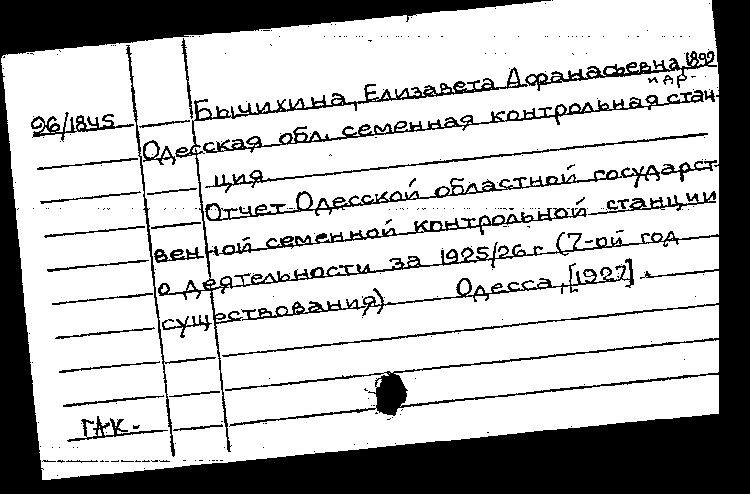 Бычихина, Елизавета Афанасьевна, 1892
пар.
96/1845
Одесская обл. семенная контрольная стан-
ция.
Отчет Одесской областной государст
венной семенной контрольной станции
о деятельности за 1925/26 г (7-ой год
существования). Одесса, [1927].
ГАК.